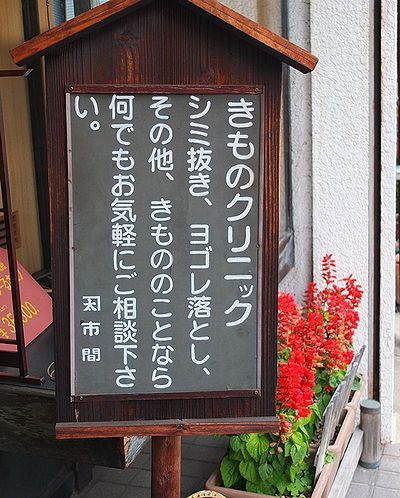 きものクリニック
シミ抜き、ヨゴレ落とし、
その他、きもののことなら
何でもお気軽にご相談下さ
い。
市間